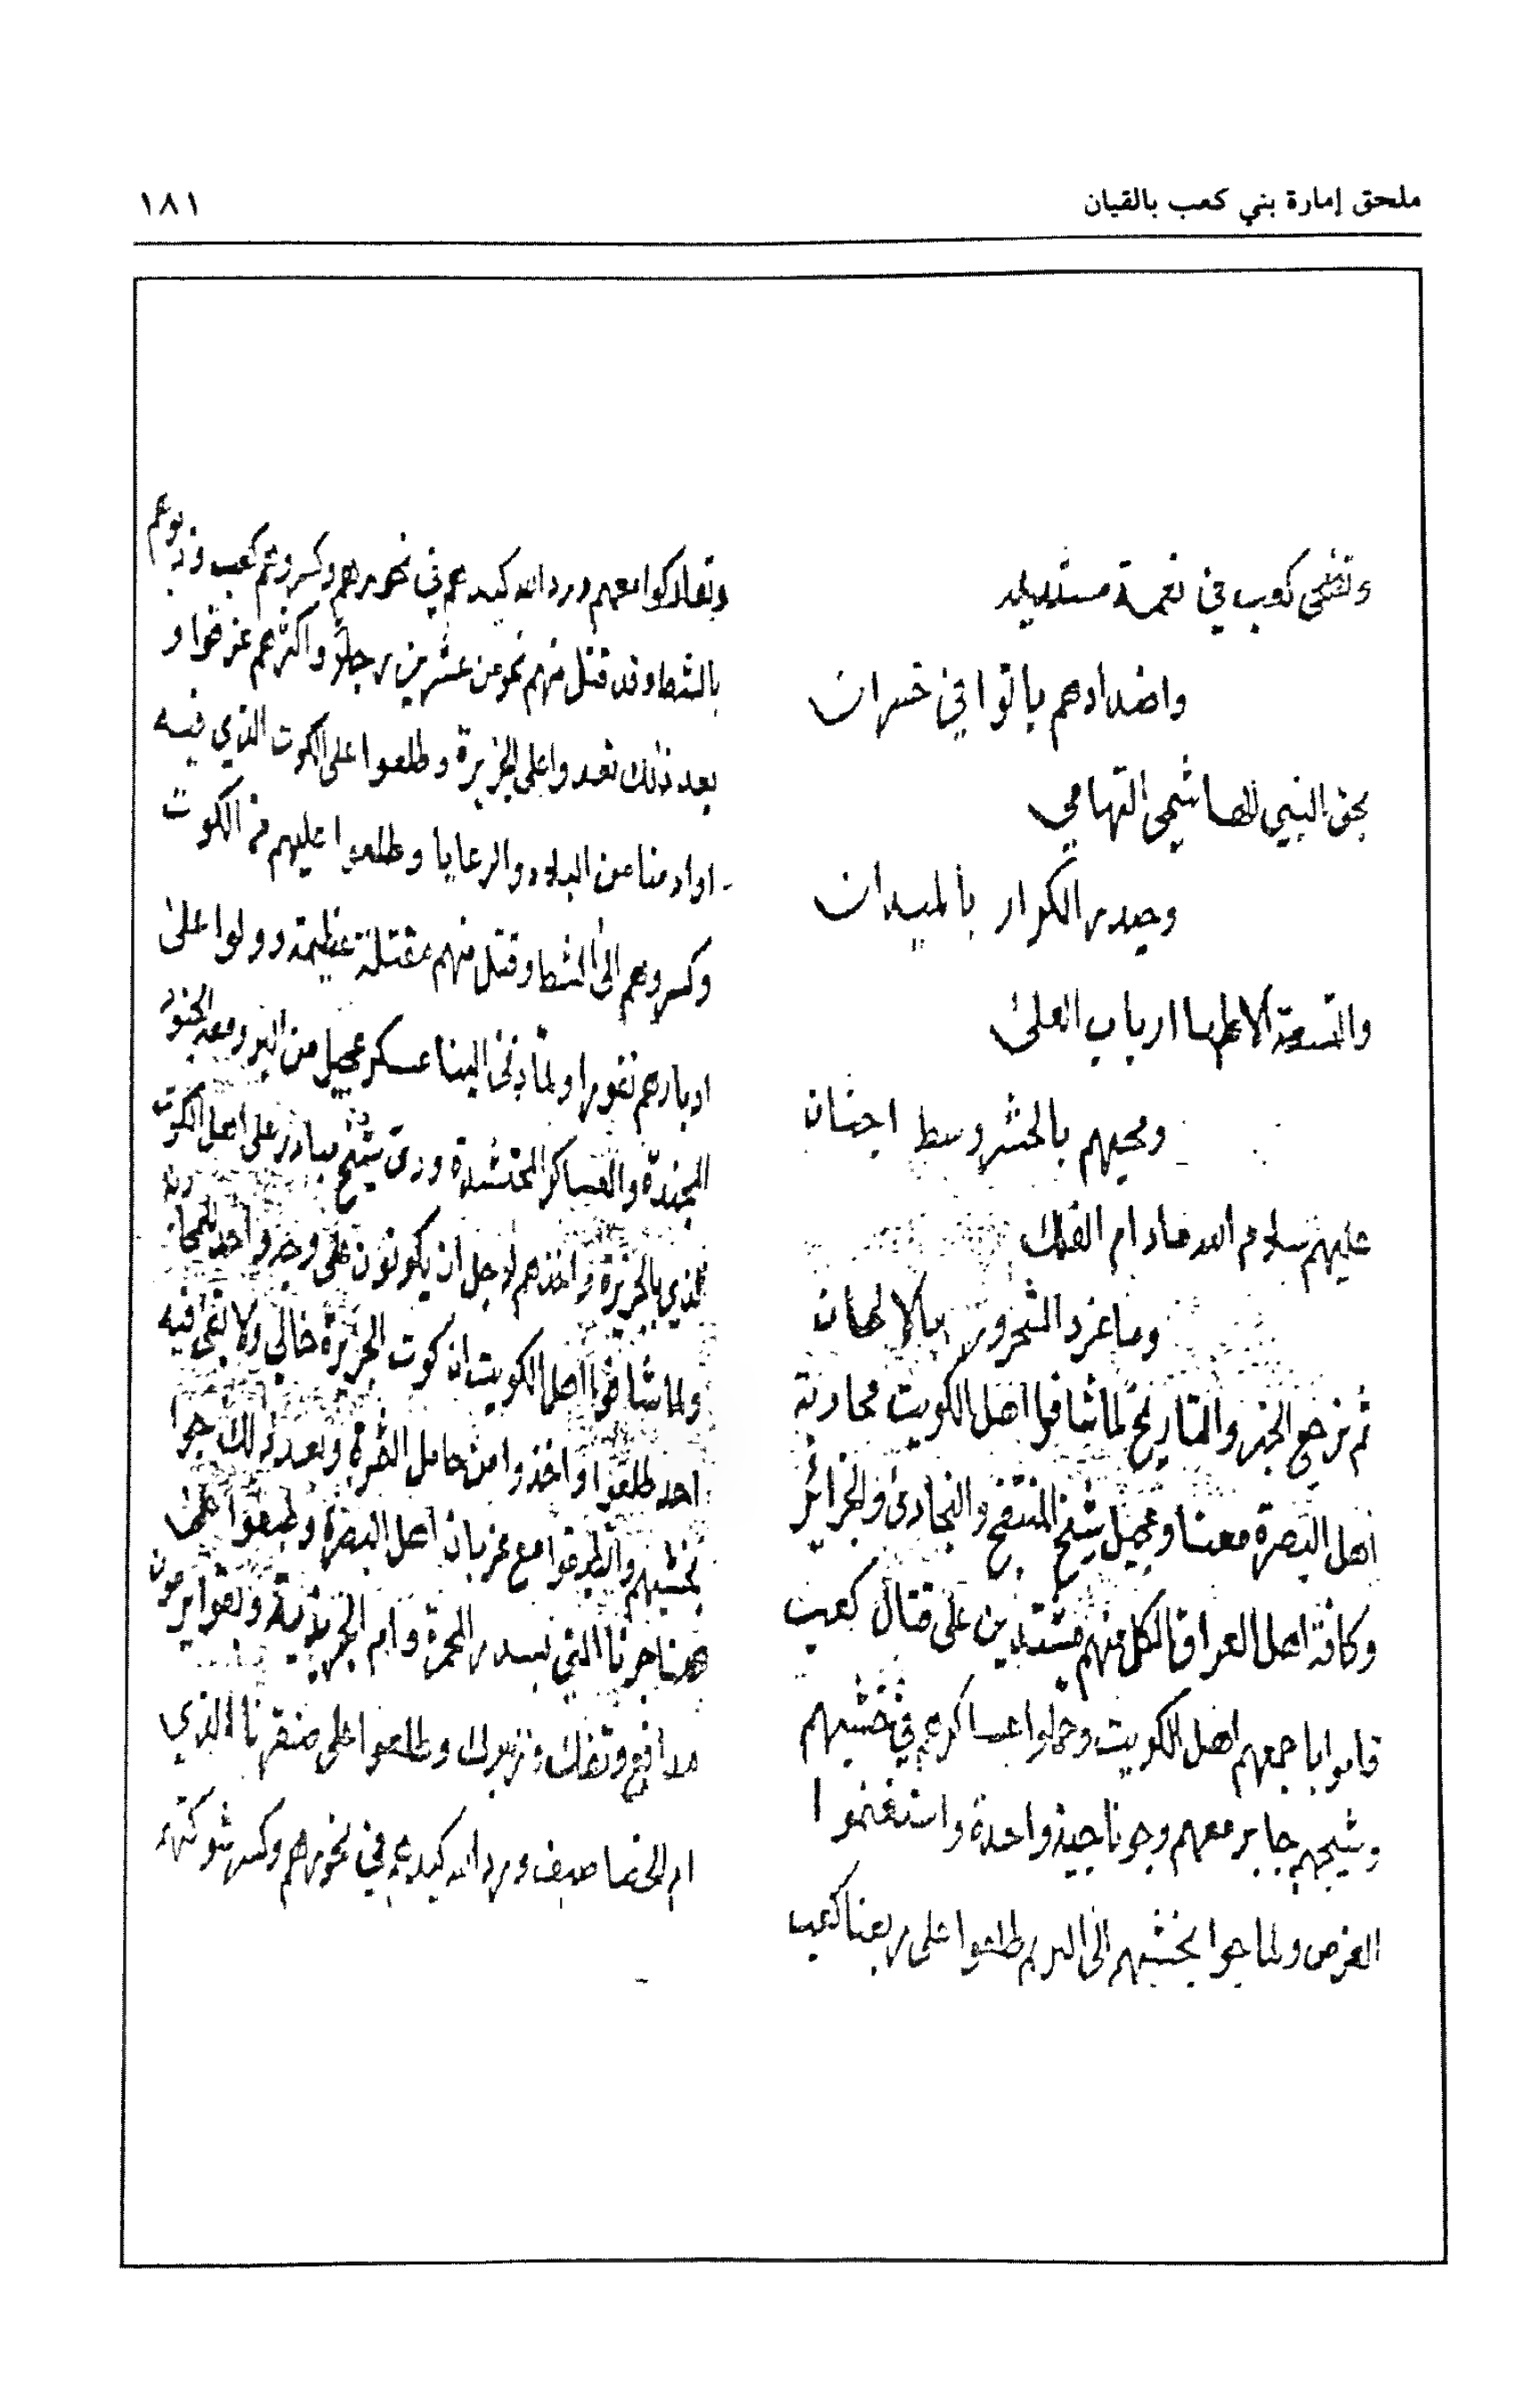 ملحق إمارة بني كعب بالقبان
١٨١
وتضحى كعب في نعمة مستديمه
واضدادهم باتوا في خسران
بحق النبي الهاشمي التهامي
وحيدر الكرار بالميدان
والتسعة الاطهار ارباب العلى
ومحبهم بالحشر وسط اجنان
عليهم سلام الله مادام الفلك
وما غرد الشحرور بالالحان
ثم نرجع الخبر والتاريخ لما شافوا اهل الكويت محاربة
اهل البصرة معنا وعجيل شيخ المنتفج والنجادى والجزائر
وكافة اهل العراق الكل منهم على قتال كعب
قاموا باجمعهم اهل الكويت وحملوا عساكرهم في خشبهم
وشيخهم جابر معهم وجونا جية واحدة واستغنموا
الفرص ولما جوا بخشبهم الى البر طلعوا على ربعنا كعب
وتعاركوا معهم ورد الله كيدهم في نحورهم وكسروهم كعب وذبوهم
بالشط وقد قتل منهم نحو من عشرين رجلاً واكثرهم غرقوا و
بعد ذلك تعدوا على الجزيرة وطلعوا على الكوت الذي فيه
اوادمنا من البلاد والرعايا وطلعوا عليهم من الكوت
وكسروهم الى الشط وقتل منهم مقتلة عظيمة وولوا على
ادبارهم نفورا ولما دنى الينا عسكر عجيل من البر ومعه الجنود
المجندة والعساكر المحتشدة ودى شيخ مبادر على اهل الكوت
الذي بالجزيرة واخذهم لاجل ان يكونون على وجه واحد
ولما شافوا اهل الكويت ان كوت الجزيرة خالي ولا بقى فيه
احد طلعوا واخذوا من حامل الثمرة وبعد ذلك جوا
بخشبهم واتفقوا مع غربان اهل البصرة وطبقوا على
هنا جرنا التي بسدر المحمرة وام الجريذية وبقوا يرمون
مدافع وتفك وزنبرك وطلعوا على صنقرنا الذي
ام الخصاصيف ورد الله كيدهم في نحورهم وكسر شوكتهم